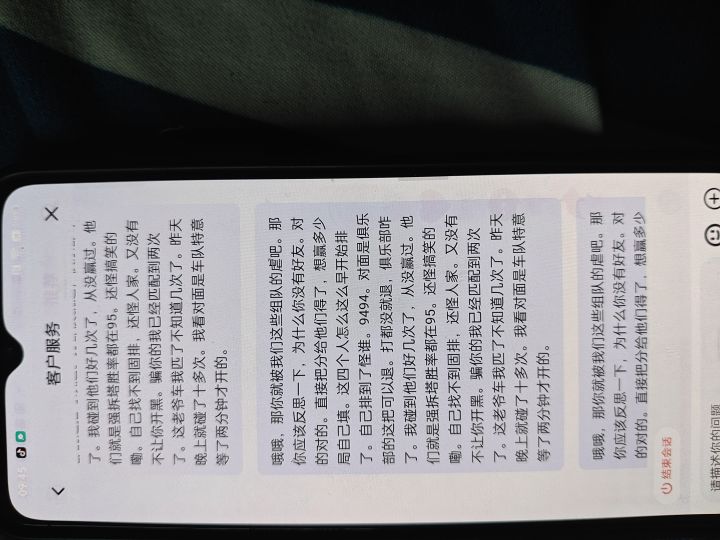 09:45
客户服务
了。我碰到他们好几次了，从没赢过。他
们就是强拆塔胜率都在95。还怪搞笑的
嘞。自己找不到固排，还怪人家。又没有
不让你开黑。骗你的我已经匹配到两次
了。这老爷车我匹了不知道几次了。昨天
晚上就碰了十多次。我看对面是车队特意
等了两分钟才开的。
哦哦，那你就被我们这些组队的虐吧。那
你应该反思一下，为什么你没有好友。对
的对的。直接把分给他们得了，想赢多少
局自己填。这四个人怎么这么早开始排
了。自己排到了怪谁。9494。对面是俱乐
部的这把可以退。打都没就退，俱乐部咋
了。我碰到他们好几次了，从没赢过。他
们就是强拆塔胜率都在95。还怪搞笑的
嘞。自己找不到固排，还怪人家。又没有
不让你开黑。骗你的我已经匹配到两次
了。这老爷车我匹了不知道几次了。昨天
晚上就碰了十多次。我看对面是车队特意
等了两分钟才开的。
哦哦，那你就被我们这些组队的虐吧。那
你应该反思一下，为什么你没有好友。对
的对的。直接把分给他们得了，想赢多少
结束会话
请描述你的问题